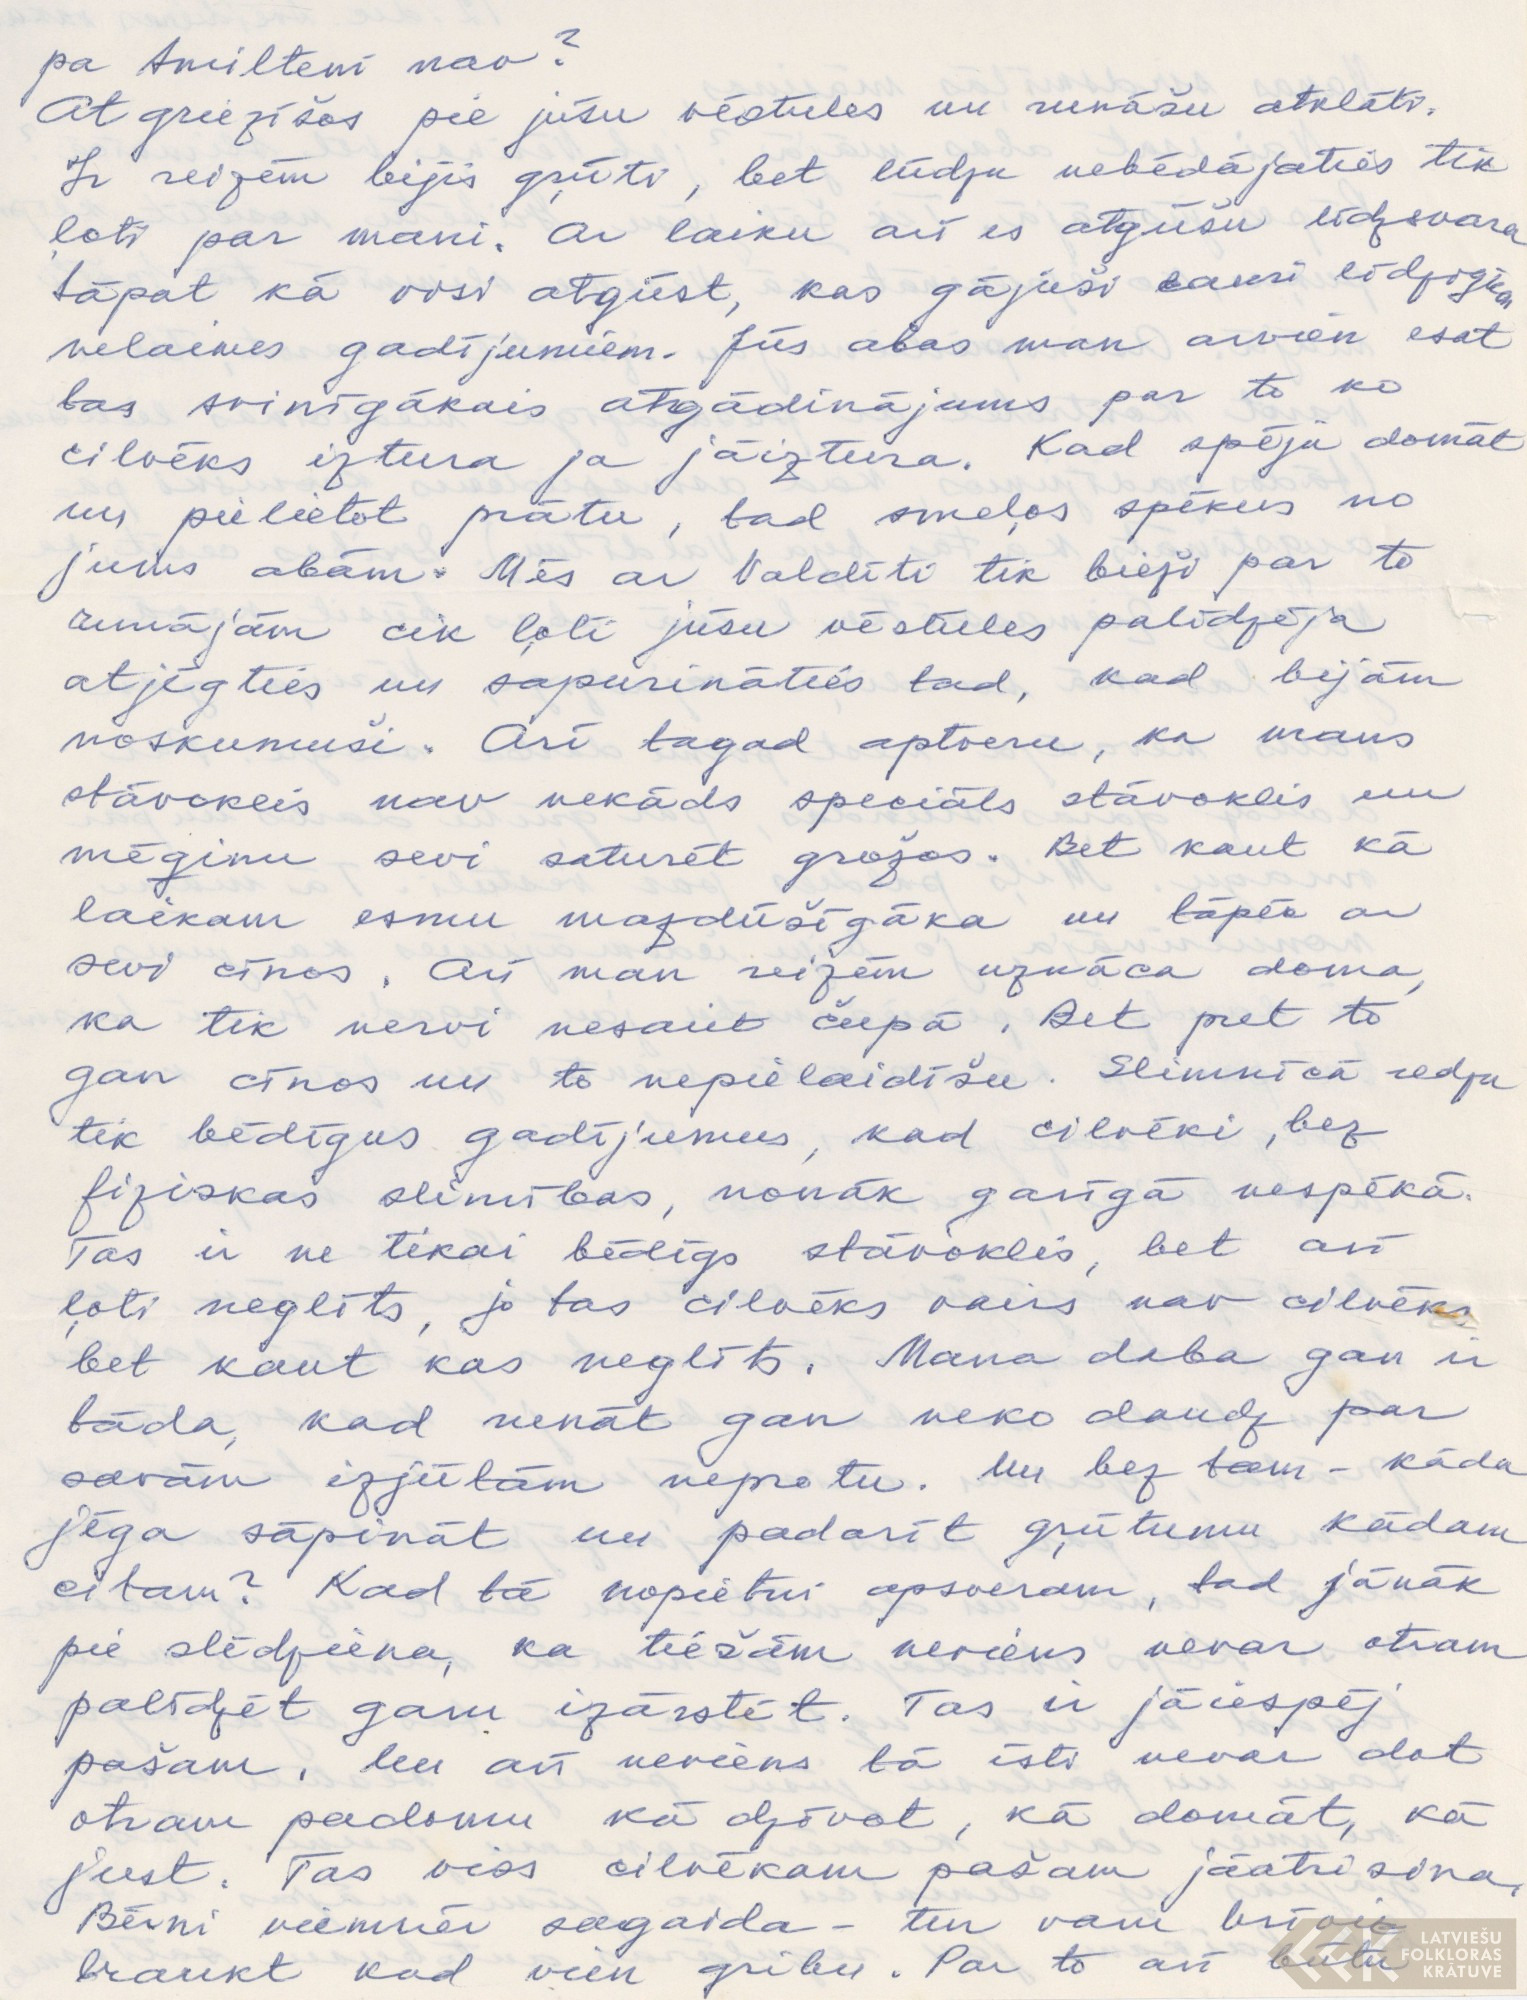 pa Smilteni nav?
Atgriezīšos pie jūsu vēstules un runāšu atklāti.
Ir reizēm bijis grūti, bet lūdzu nebēdājaties tik
ļoti par mani. Ar laiku arī es atgūšu līdzsvaru
tāpat kā visi atgūst, kas gājuši cauri līdzīgiem
nelaimes gadījumiem. Jūs abas man arvien esat
tas svinīgākais atgādinājums par to ko
cilvēks iztura ja jāiztura. Kad spēju domāt
un pielietot prātu, tad smeļos spēkus no
jums abām. Mēs ar Valdīti tik bieži par to
runājām cik ļoti jūsu vēstules palīdzēja
atjēgties un sapurināties tad, kad bijām
noskumuši. Arī tagad aptveru, ka mans
stāvoklis nav nekāds speciāls stāvoklis un
mēģinu sevi saturēt grožos. Bet kaut kā
laikam esmu mazdūšīgāka un tāpēc ar
sevi cīnos. Arī man reizēm uznāca doma,
ka tik nervi nesaiet čupā. Bet pret to
gan cīnos un to nepielaidīšu. Slimnīcā redzu
tik bēdīgus gadījumus, kad cilvēki, bez
fiziskas slimības, nonāk garīgā nespēkā.
Tas ir ne tikai bēdīgs stāvoklis, bet arī
ļoti neglīts, jo tas cilvēks vairs nav cilvēks
bet kaut kas neglīts. Mana daba gan ir
tāda, kad runāt gan neko daudz par
savām izjūtām neprotu. Un bez tam – kāda
jēga sāpināt un padarīt grūtumu kādam
citam? Kad tā nopietni apsveram, tad jānāk
pie slēdziena, ka tiešām neviens nevar otram
palīdzēt garu izārstēt. Tas ir jāiespēj
pašam. Un arī neviens tā īsti nevar dot
otram padomu kā dzīvot, kā domāt, kā
just. Tas viss cilvēkam pašam jāatrisina.
Bērni vienmēr sagaida – tur varu brīvi
braukt kad vien gribu. Par to arī būtu
LATVIEŠU
FOLKLORAS
KRĀTUVE